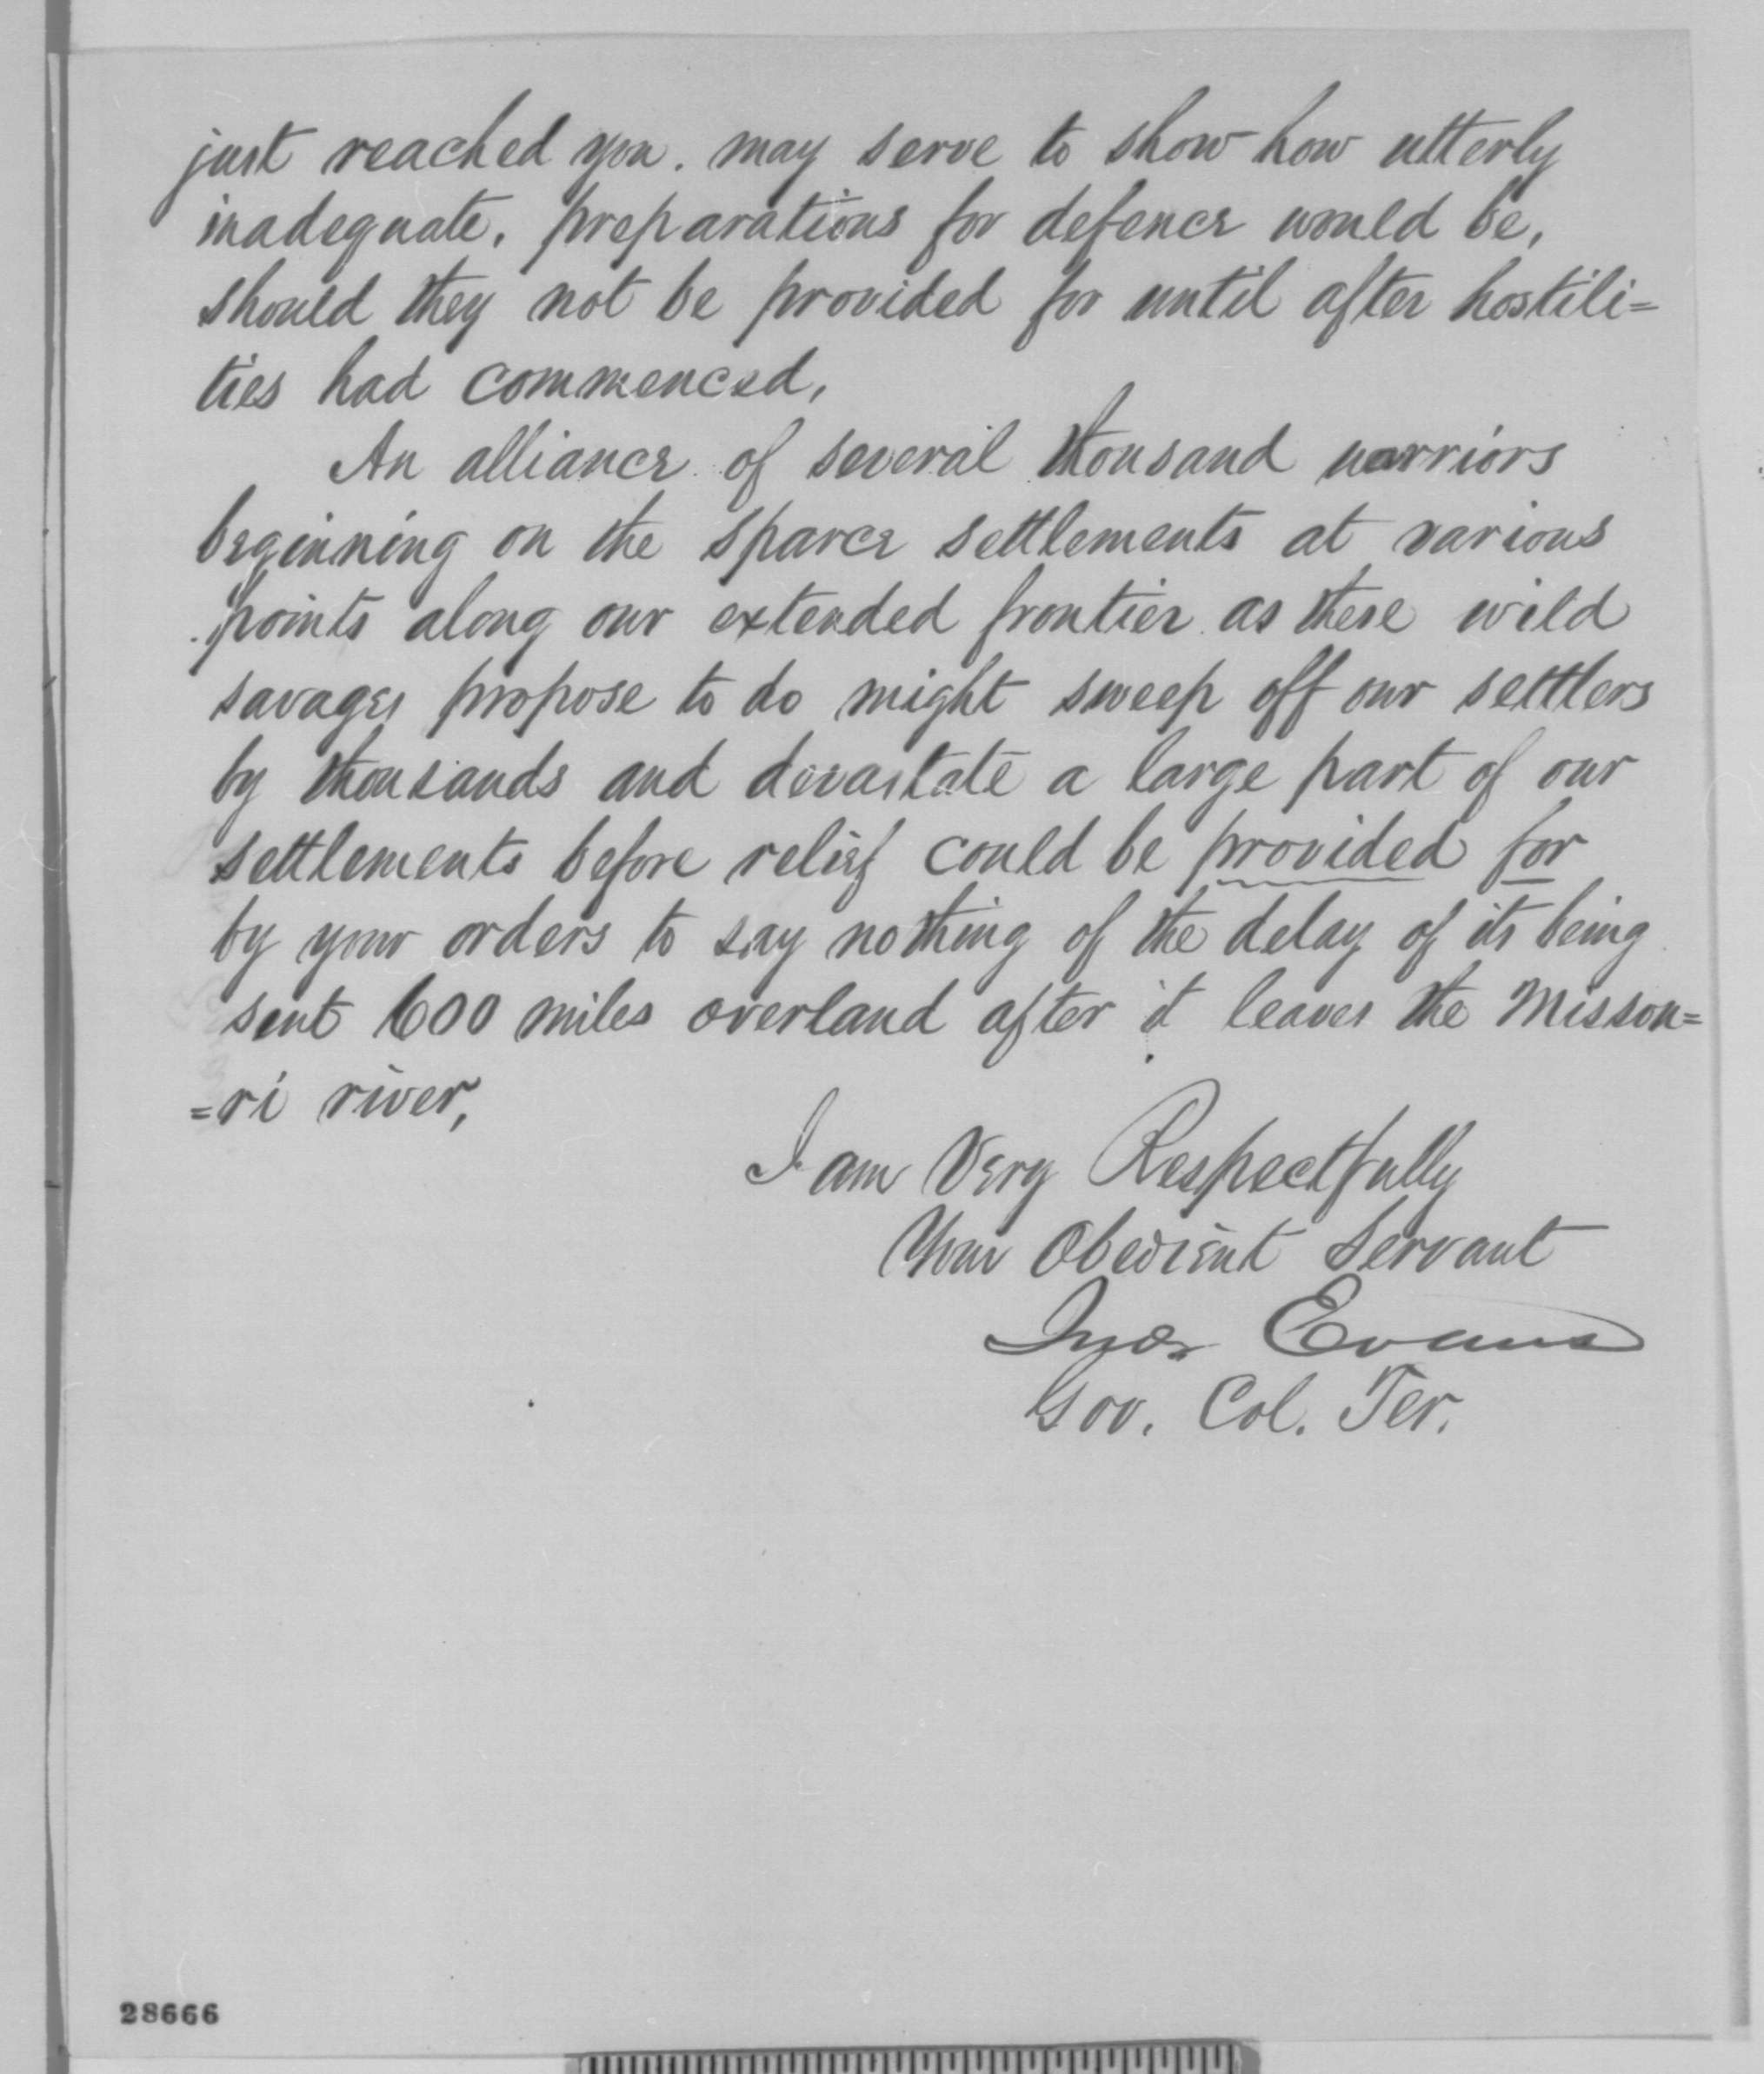 just reached you. may serve to show how utterly
inadequate, preparations for defence would be,
should they not be provided for until after hostili=
ties had commenced,
An alliance of several thousand warriors
beginning on the sparce settlements at various
points along our extended frontier as these wild
savages propose to do might sweep off our settlers
by thousands and devastate a large part of our
settlements before relief could be provided for
by your orders to say nothing of the delay of its being
sent 600 miles overland after it leaves the Missou=
=ri river,
I am Very Respectfully
Your Obedient Servant
Jno. Evans
Gov. Col. Ter.
28666